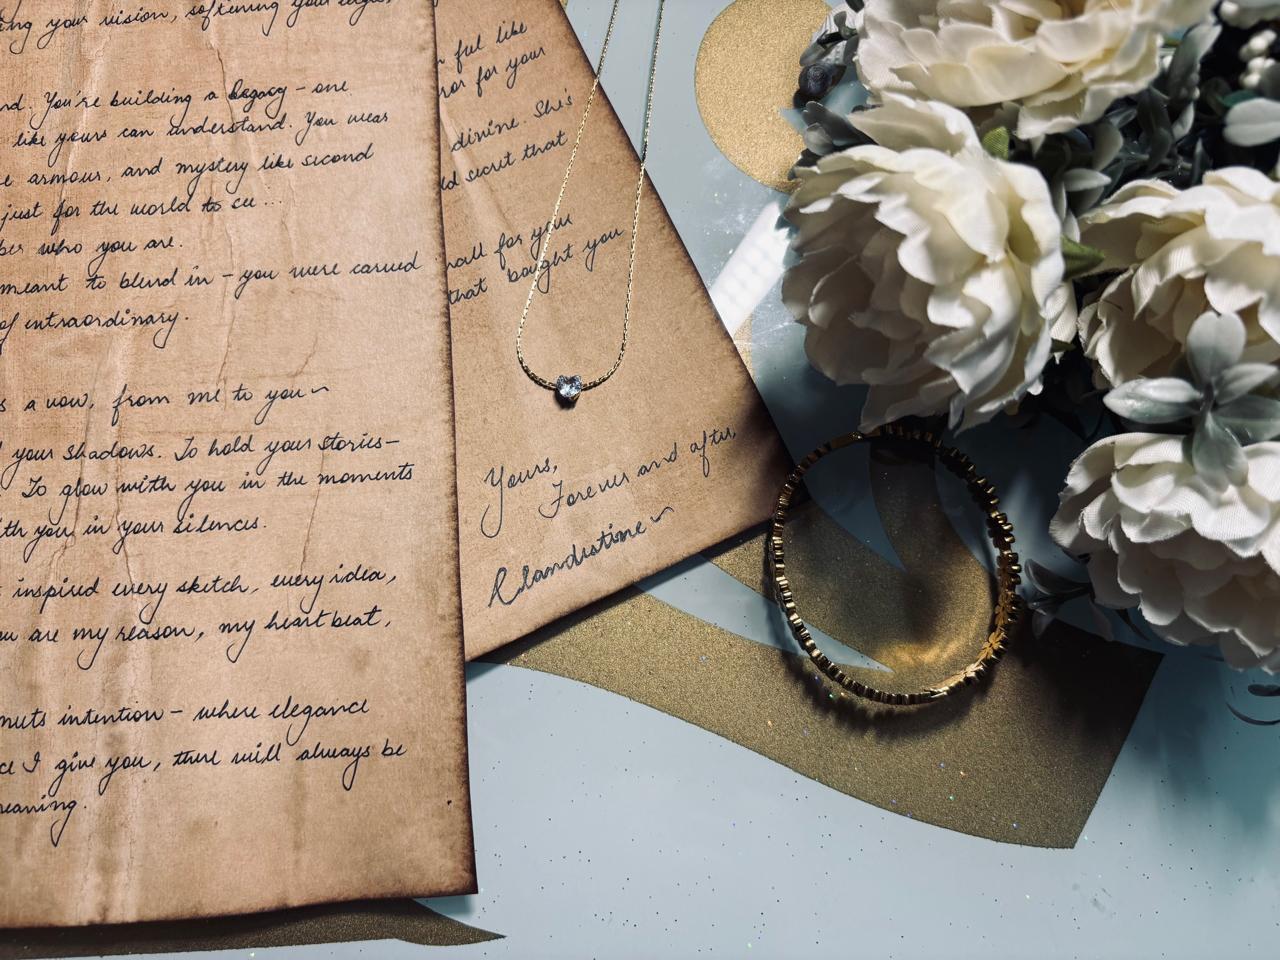 ing your vision, softening your edges,
nd. You're building a legacy – one
like yours can understand. You wear
e armour, and mystery like second
just for the world to cu...
ber who you are.
meant to blend in – you were carved
of extraordinary.
s a vow, from me to you~
d your shadows. To hold your stories–
To glow with you in the moments
ith you in your silences.
t inspired every sketch, every idea,
ou are my reason, my heartbeat,
meets intention – where elegance
ce I give you, there will always be
meaning.
ful like
for your
divine. She's
secret that
for you
that bought you
Yours,
Forever and after,
Klandistine~